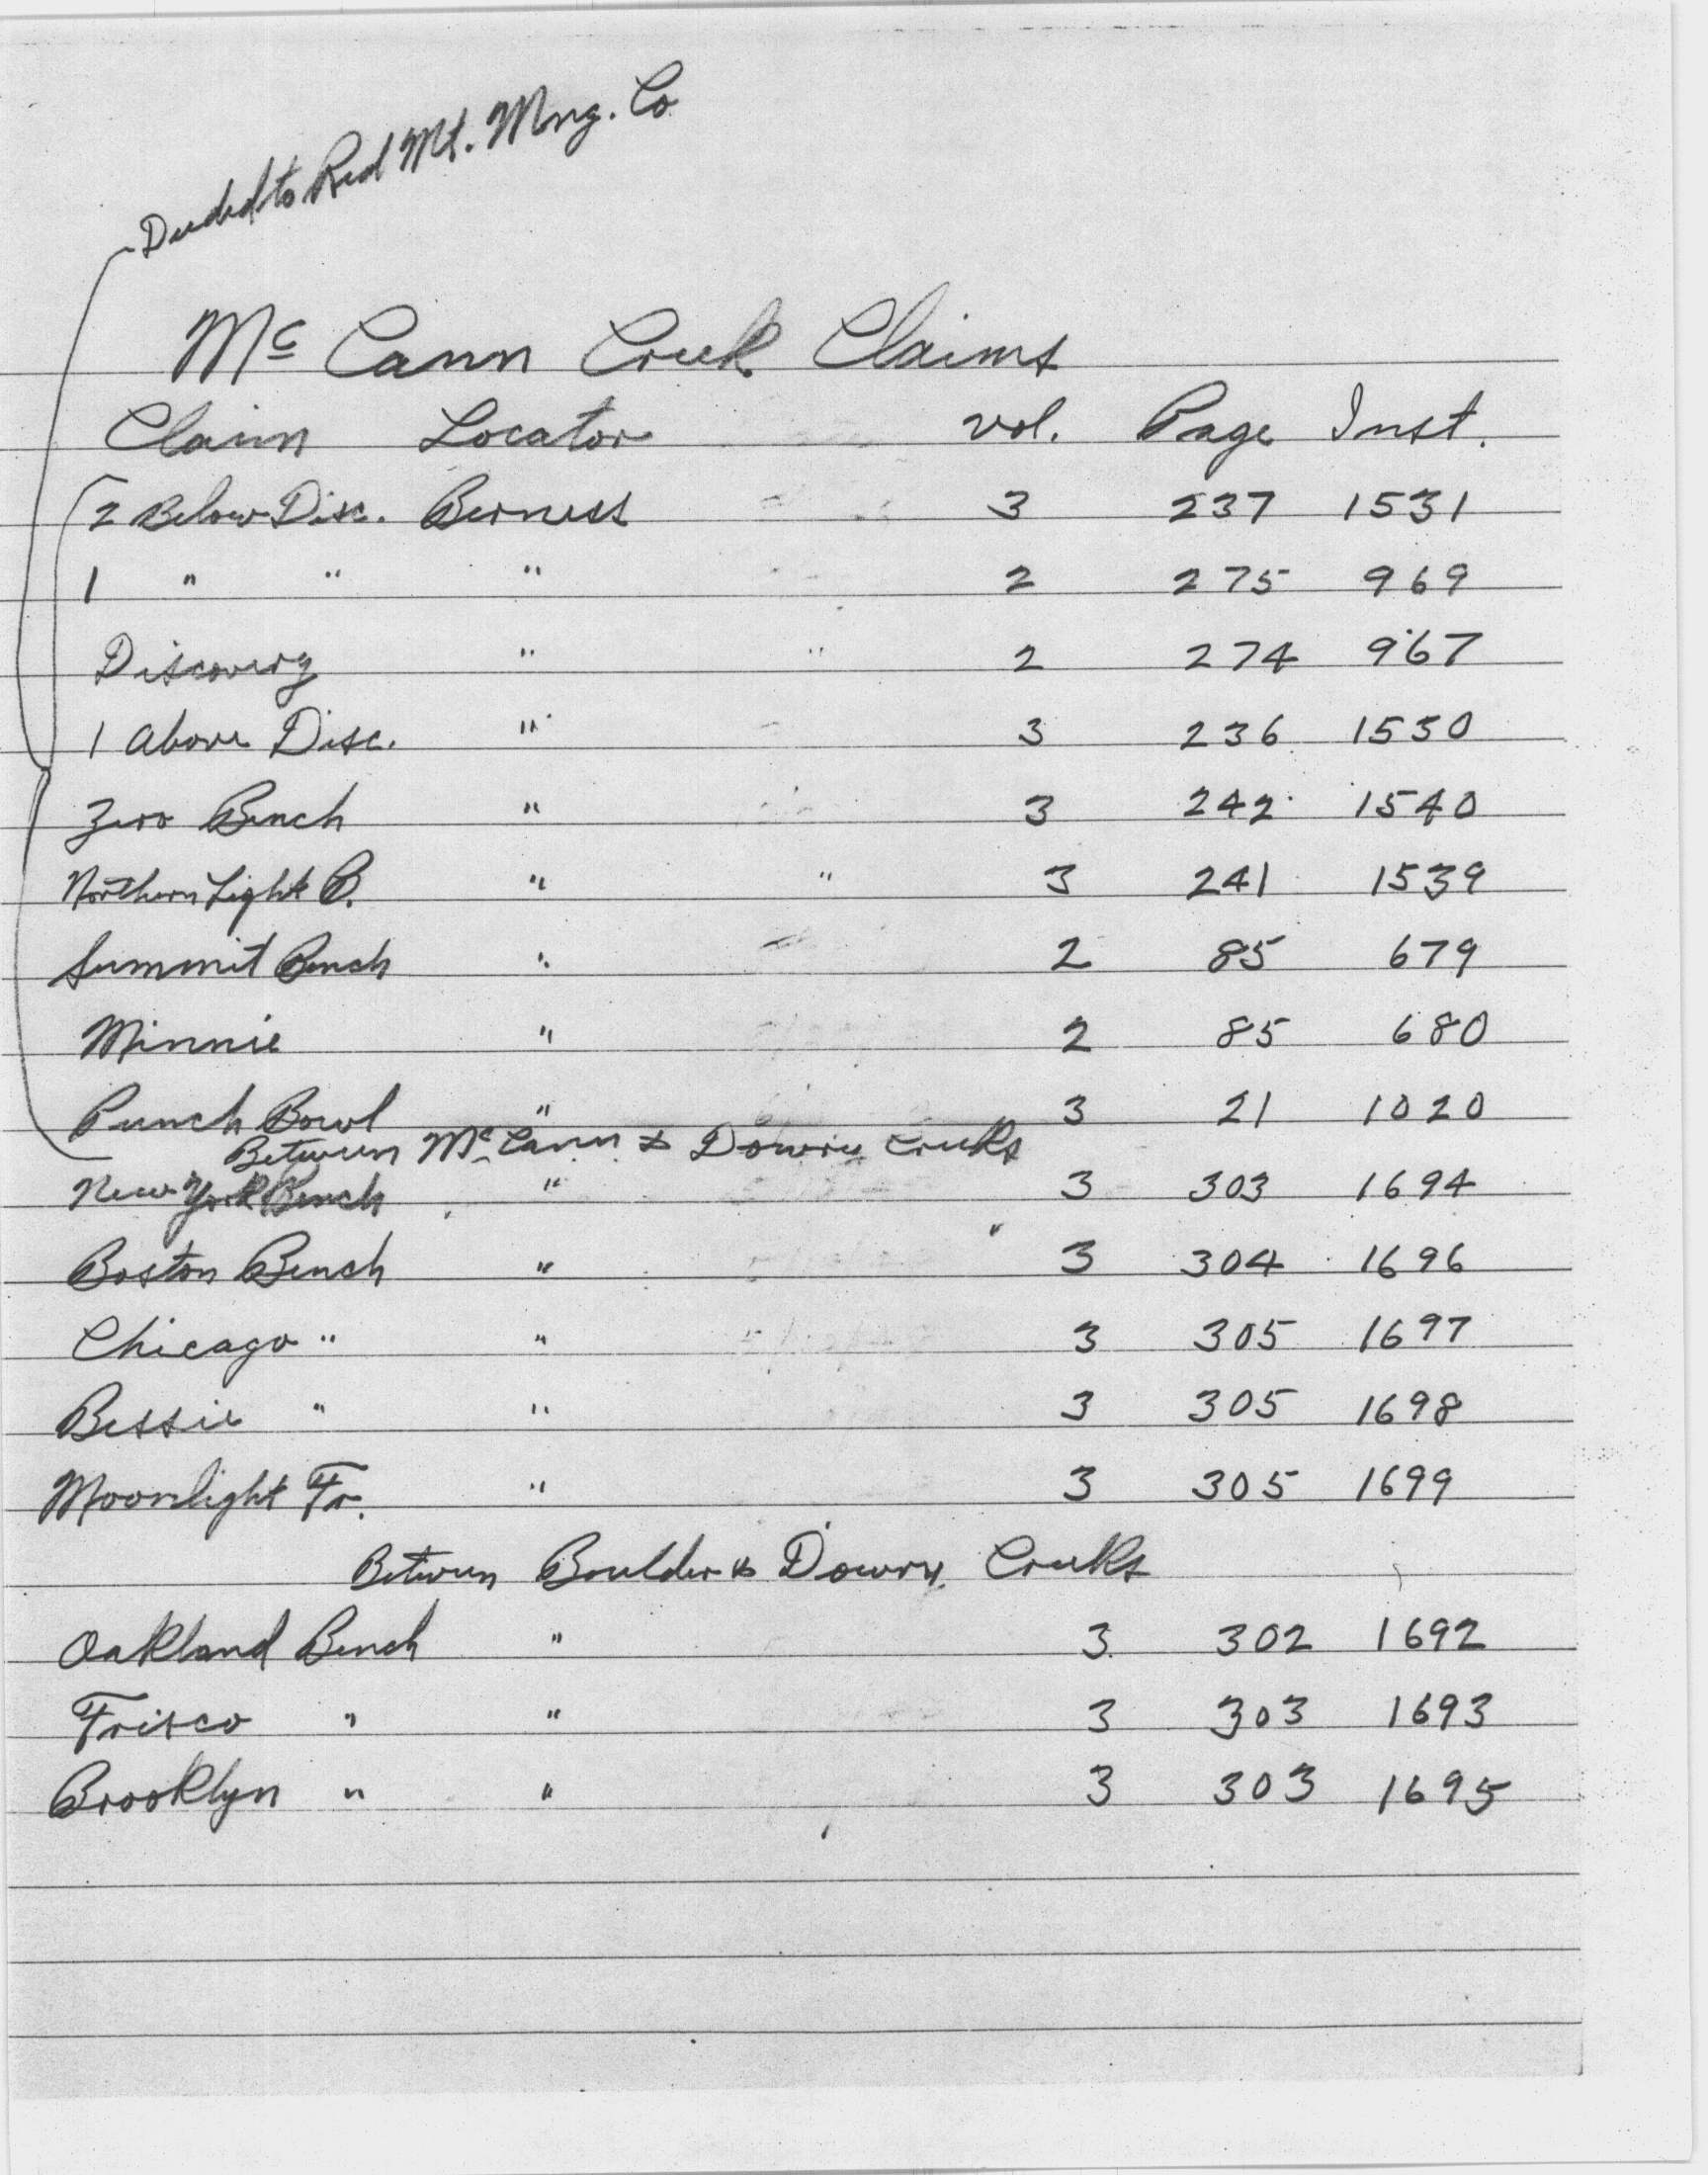 Deeded to Red Mt. Mng. Co
Mc Cann Creek Claims
Claim Locator vol. Page Inst.
2 Below Disc. Berness 3 237 1531
1 " " " 2 275 969
Discovery " " 2 274 967
1 Above Disc. " 3 236 1530
Zero Bench " 3 242 1540
Northern Light B. " " 3 241 1539
Summit Bench " 2 85 679
Minnie " 2 85 680
Punch Bowl " 3 21 1020
Between Mc Cann & Dowry Creeks
New York Bench " 3 303 1694
Boston Bench " 3 304 1696
Chicago " " 3 305 1697
Bessie " " 3 305 1698
Moonlight Fr. " 3 305 1699
Between Boulder & Dowry Creeks
Oakland Bench " 3 302 1692
Frisco " " 3 303 1693
Brooklyn " " 3 303 1695